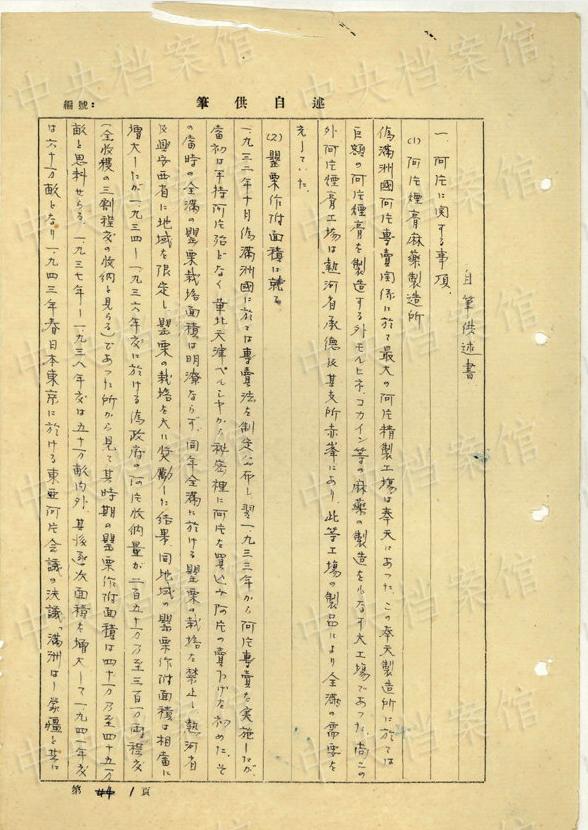 編號：
筆供自述
自筆供述書
一 阿片に関する事項.
(1) 阿片煙膏麻薬製造所
偽満洲國阿片専賣関係に於て最大の阿片精製工場は奉天にあった。この奉天製造所に於ては
巨額の阿片煙膏を製造する外モルヒネ、コカイン等の麻薬の製造を行なう大工場であった。尚この
外阿片煙膏工場は熱河省承徳及其支所赤峯にあり、此等工場の製品により全満の需要を
充していた。
(2) 罌粟作附面積に就て
一九三二年十月偽満洲國に於ては専賣法を制定公布し翌一九三三年から阿片専賣を実施したが、
當初は手持阿片殆どなく華北天津ペルシヤから秘密裡に阿片を買込み阿片の賣下げを初めた。そ
の當時の全満の罌粟栽培面積は明瞭ならず、同年全満に於ける罌粟の栽培を禁止し熱河省
及興安西省に地域を限定し罌粟の栽培を大に奨励した結果同地域の罌粟作附面積は相當に
増大したが一九三四－一九三六年度に於ける偽政府の阿片收納量が二百五十万乃至三百万両程度
(全收穫の三割程度の收納と見らる)であった所から見て其時期の罌粟作附面積は四十万乃至四十五万
畝と思料せらる。一九三七年－一九三八年度は五十万畝内外、其後逐次面積を増大して一九四一年度
は六十万畝となり一九四三年春日本東京に於ける東亜阿片会議の決議、満洲は蒙疆と共に
第 1 頁
中央档案馆